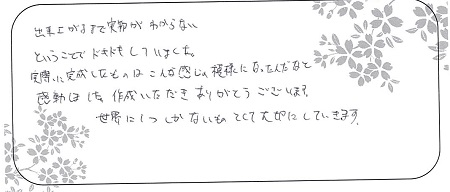 出来上がるまで実物がわからない
ということでドキドキしていました。
実際に完成したものはこんな感じの模様になったんだなと
感動しました。作成いただきありがとうございます。
世界に1つしかないものとして大切にしていきます。